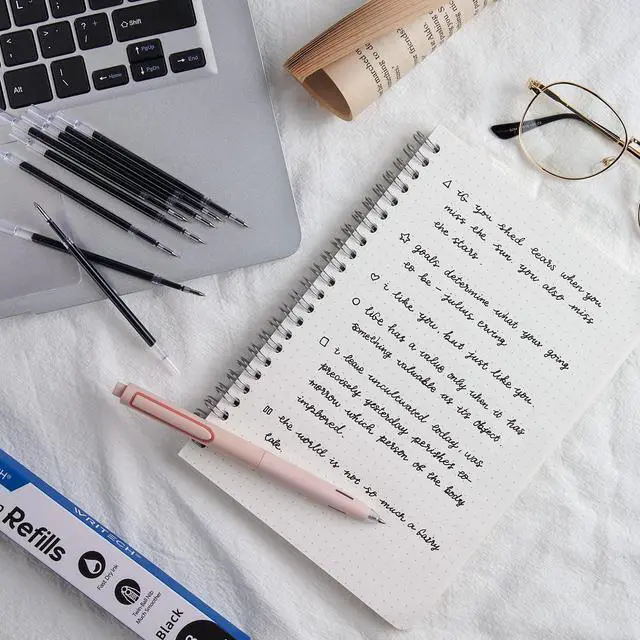 Shift
PgUp
Home
PgDn
End
Alt
△ if you shed tears when you
miss the sun, you also miss
the stars.
☆ goals determine what your going
to be - julius erving
♡ i like you, but just like you
○ life has a value only when it has
something valuable as its object
□ i leave uncultivated today, was
precisely yesterday perishes to-
morrow which person of the body
implored.
the world is not so much a fairy
tale
WRITECH
Refills
Fast Dry Ink
Twin-Ball Nib
Much Smoother
Black